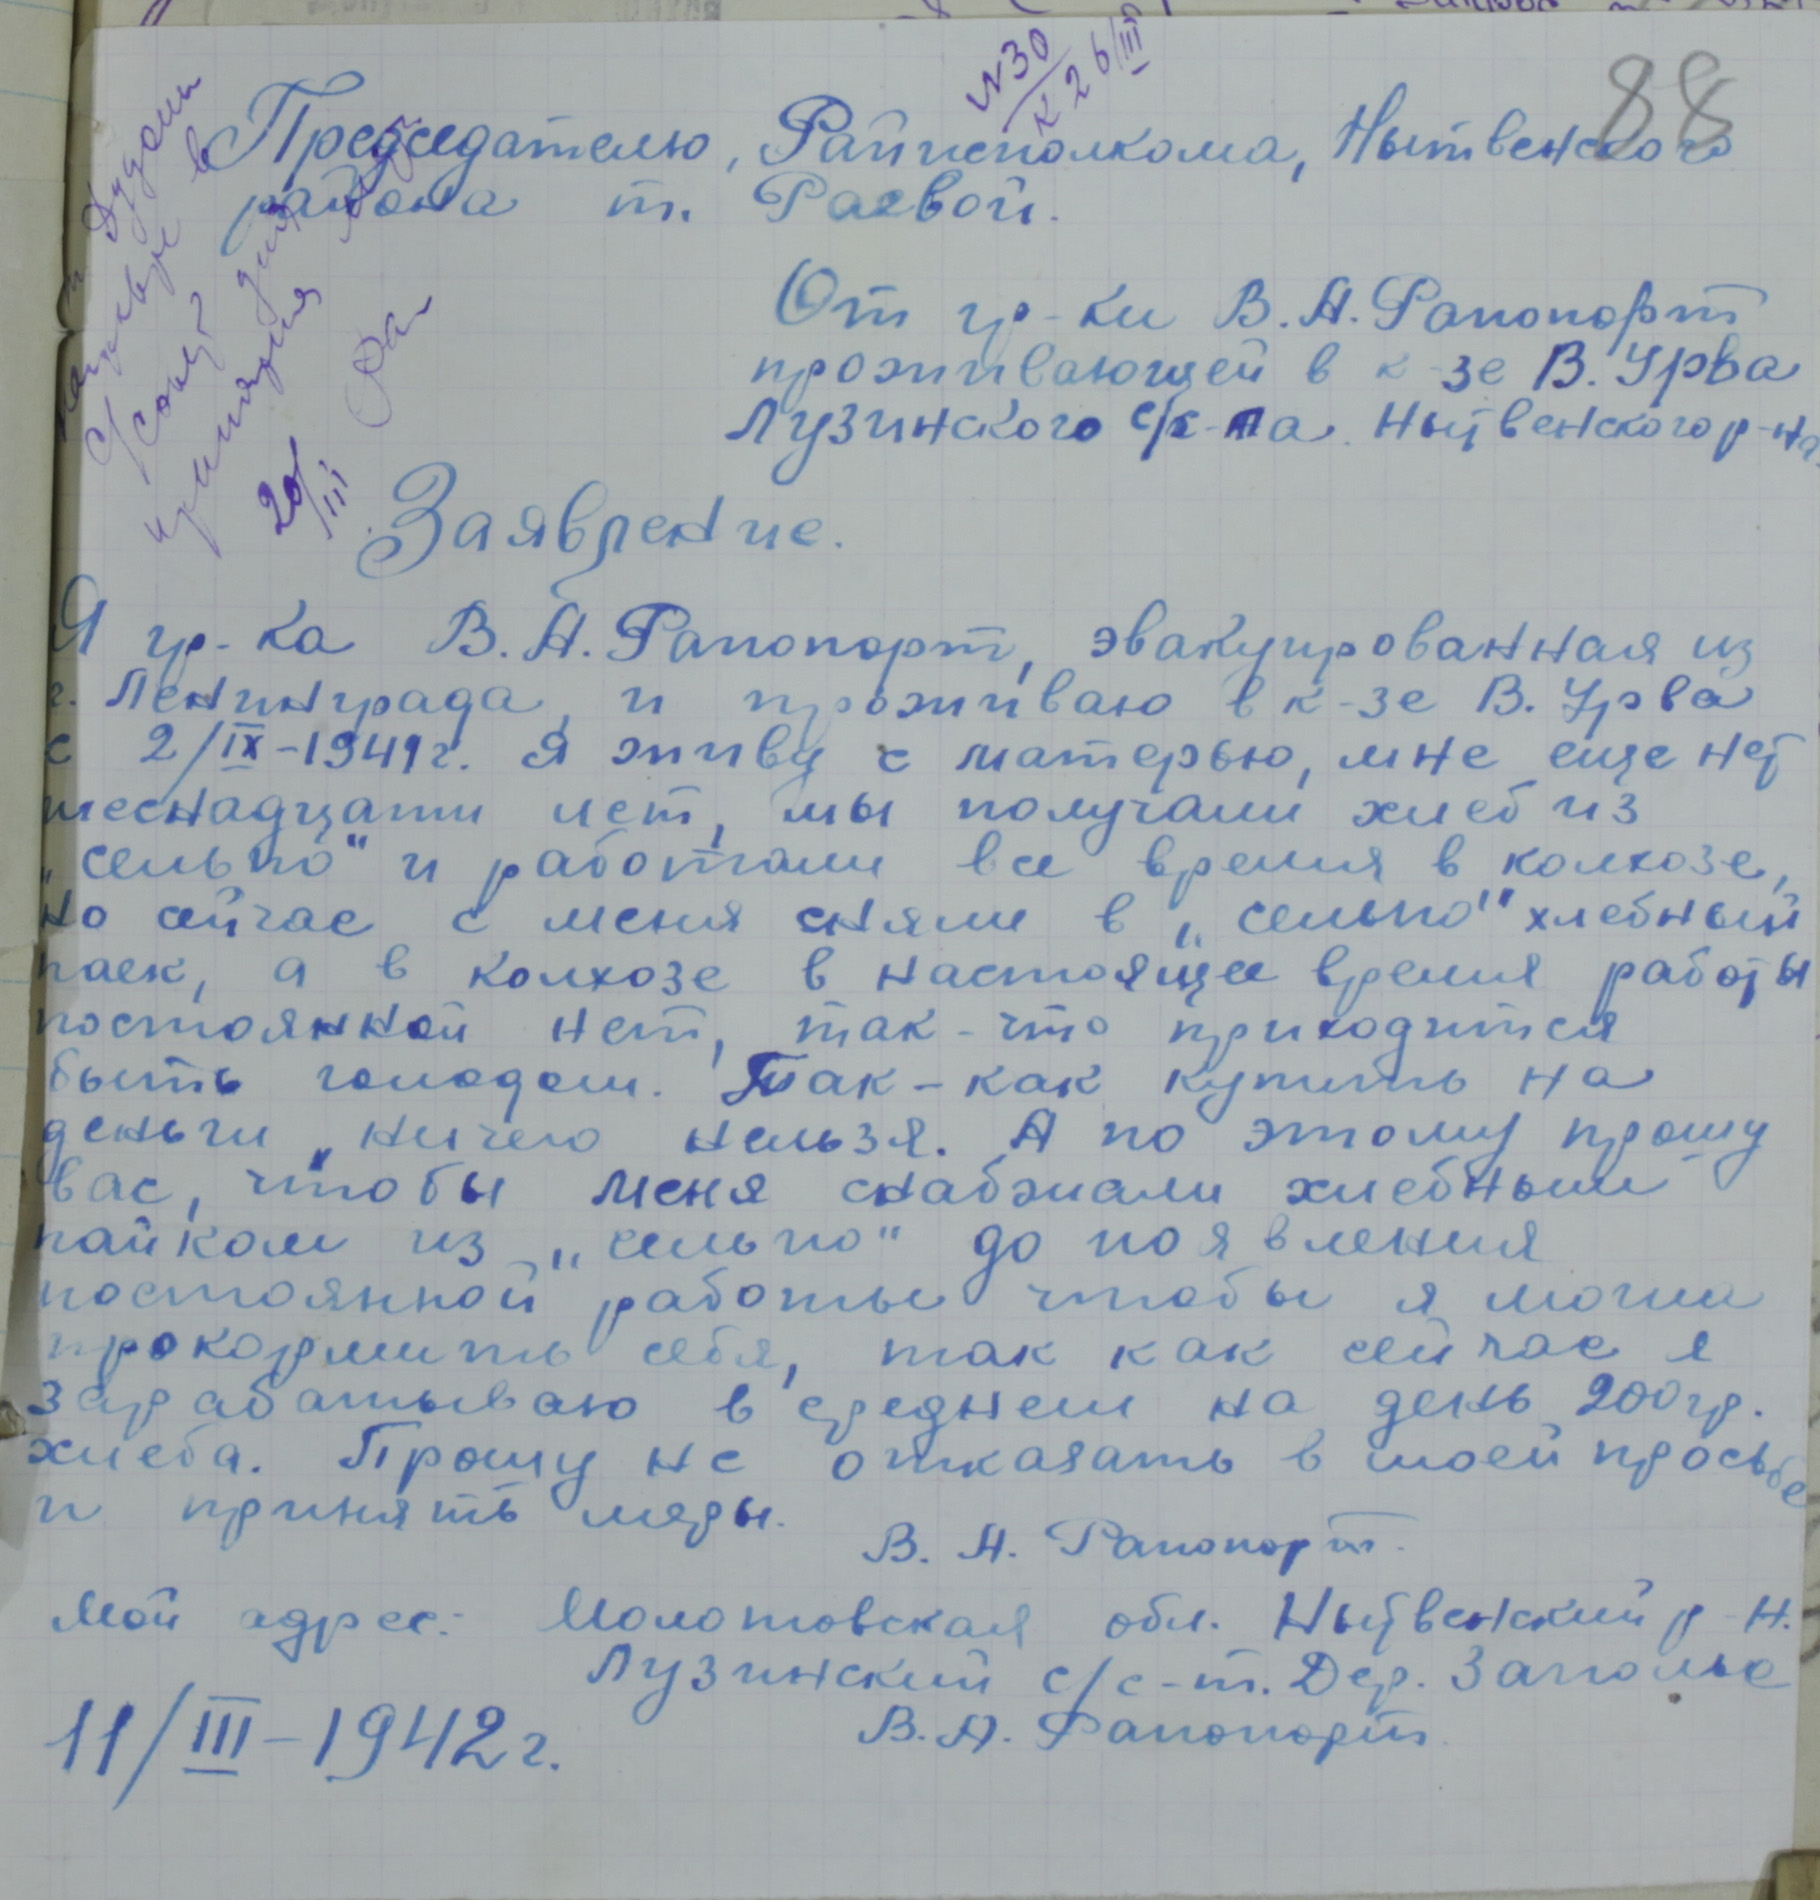 88
№30
к 26/III
Председателю, Райисполкома, Нытвенского
района т. Раевой.
От гр-ки В.А. Рапопорт
проживающей в к-зе В. Урва
Лузинского с/с-та. Нытвенского р-на.
20/III
Заявление.
Я гр-ка В.А. Рапопорт, эвакуированная из
г. Ленинграда, и проживаю в к-зе В. Урва
с 2/IX-1941г. Я живу с матерью, мне еще нет
шеснадцати лет, мы получали хлеб из
„сельпо" и работали все время в колхозе,
но сейчас с меня сняли в „сельпо" хлебный
паек, а в колхозе в настоящее время работы
постоянной нет, так-что приходится
быть голодом. Так-как купить на
деньги ничего нельзя. А по этому прошу
вас, чтобы меня снабжали хлебным
пайком из „сельпо" до появления
постоянной работы чтобы я могла
прокормить себя, так как сейчас я
зарабатываю в среднем на день 200гр.
хлеба. Прошу не отказать в моей просьбе
и принять меры.
В. А. Рапопорт.
Мой адрес: Молотовская обл. Нытвенский р-н.
Лузинский с/с-т. Дер. Заполье
В.А. Рапопорт.
11/III-1942г.